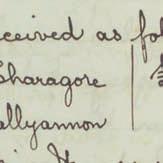 eceived as fol
Sharagore
allyannon